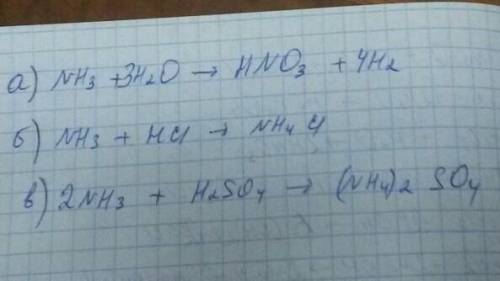 а) NH3 + 3H2O → HNO3 + 4H2
б) NH3 + HCl → NH4Cl
в) 2NH3 + H2SO4 → (NH4)2 SO4